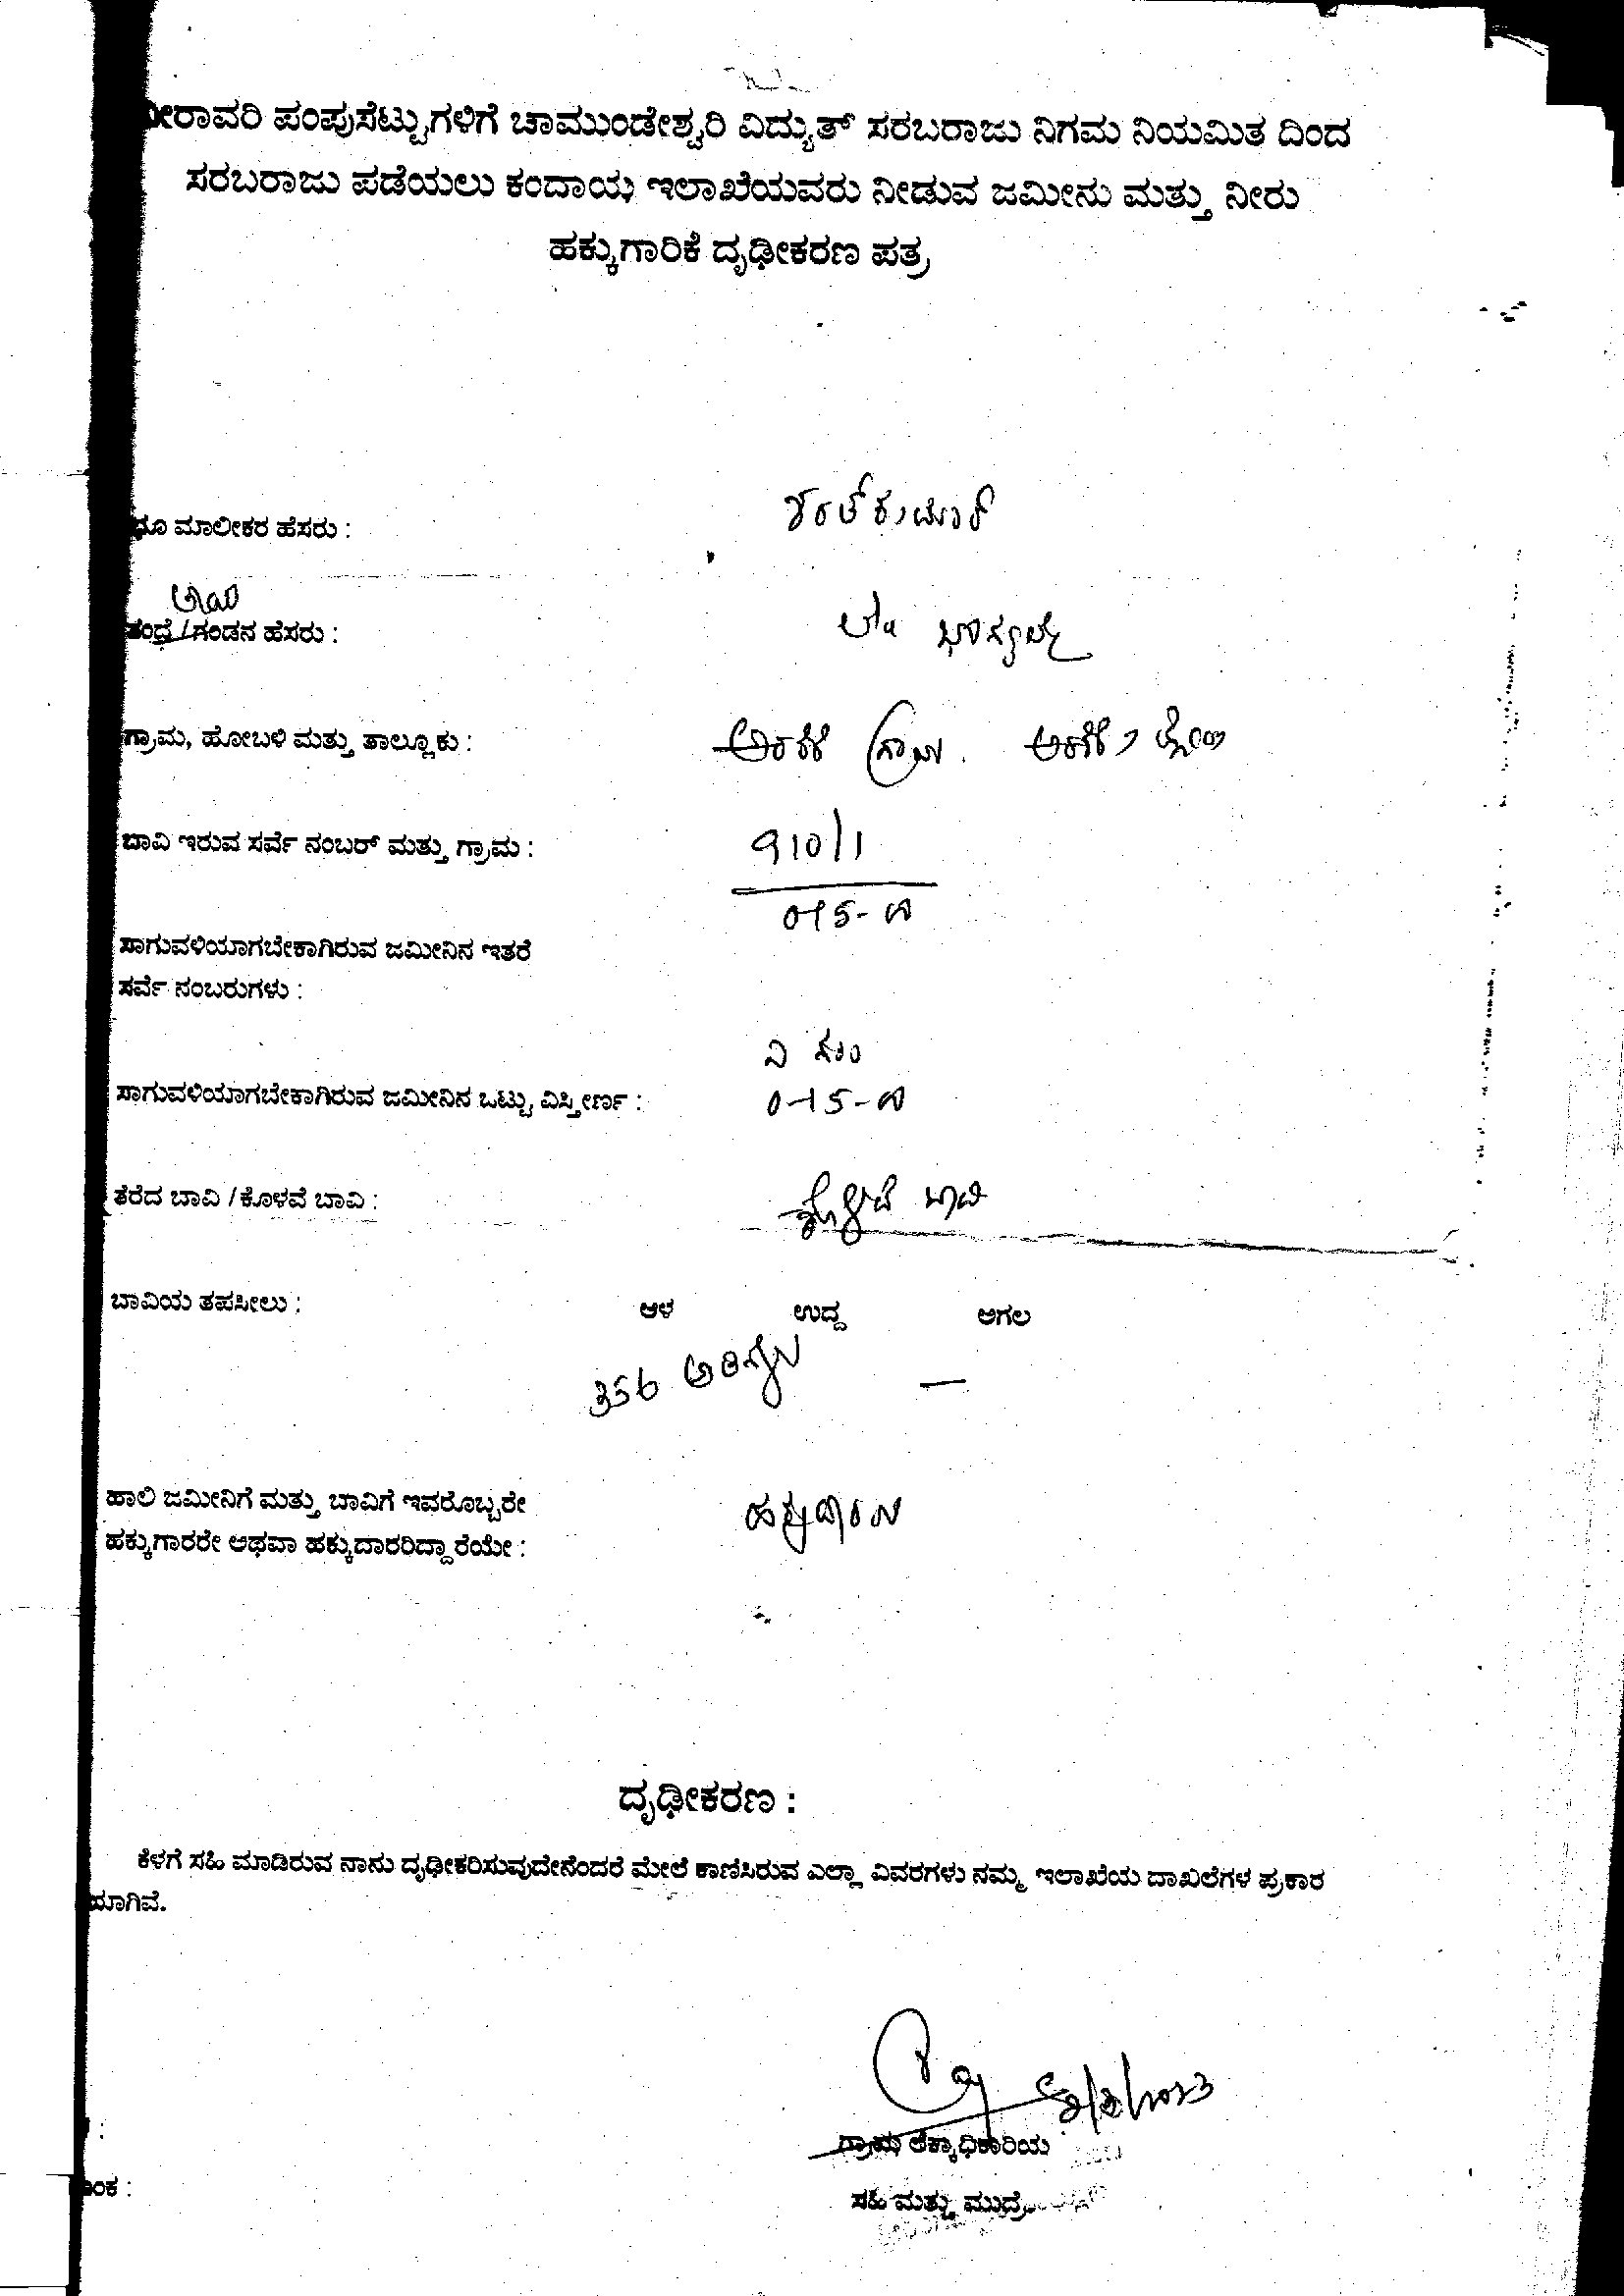 ನೀರಾವರಿ ಪಂಪುಸೆಟ್ಟುಗಳಿಗೆ ಚಾಮುಂಡೇಶ್ವರಿ ವಿದ್ಯುತ್ ಸರಬರಾಜು ನಿಗಮ ನಿಯಮಿತ ದಿಂದ
ಸರಬರಾಜು ಪಡೆಯಲು ಕಂದಾಯ ಇಲಾಖೆಯವರು ನೀಡುವ ಜಮೀನು ಮತ್ತು ನೀರು
ಹಕ್ಕುಗಾರಿಕೆ ದೃಢೀಕರಣ ಪತ್ರ
ಭೂ ಮಾಲೀಕರ ಹೆಸರು : ಶರತ್ ಕುಮಾರ್
ತಾಯಿ
ತಂದೆ/ಗಂಡನ ಹೆಸರು : ಭಾಗ್ಯಲಕ್ಷ್ಮಿ
ಗ್ರಾಮ, ಹೋಬಳಿ ಮತ್ತು ತಾಲ್ಲೂಕು : ಗ್ರಾಮ.
ಬಾವಿ ಇರುವ ಸರ್ವೆ ನಂಬರ್ ಮತ್ತು ಗ್ರಾಮ : 910/1
ಸಾಗುವಳಿಯಾಗಬೇಕಾಗಿರುವ ಜಮೀನಿನ ಇತರೆ
ಸರ್ವೆ ನಂಬರುಗಳು :
ಸಾಗುವಳಿಯಾಗಬೇಕಾಗಿರುವ ಜಮೀನಿನ ಒಟ್ಟು ವಿಸ್ತೀರ್ಣ : 0-15-
ತೆರೆದ ಬಾವಿ /ಕೊಳವೆ ಬಾವಿ : ಕೊಳವೆ ಬಾವಿ
ಬಾವಿಯ ತಪಸೀಲು : ಆಳ ಉದ್ದ ಅಗಲ
356 —
ಹಾಲಿ ಜಮೀನಿಗೆ ಮತ್ತು ಬಾವಿಗೆ ಇವರೊಬ್ಬರೇ
ಹಕ್ಕುಗಾರರೇ ಅಥವಾ ಹಕ್ಕುದಾರರಿದ್ದಾರೆಯೇ : ಹಕ್ಕುದಾರರು
ದೃಢೀಕರಣ :
ಕೆಳಗೆ ಸಹಿ ಮಾಡಿರುವ ನಾನು ದೃಢೀಕರಿಸುವುದೇನೆಂದರೆ ಮೇಲೆ ಕಾಣಿಸಿರುವ ಎಲ್ಲಾ ವಿವರಗಳು ನಮ್ಮ ಇಲಾಖೆಯ ದಾಖಲೆಗಳ ಪ್ರಕಾರ
ಯಾಗಿವೆ.
ಗ್ರಾಮ ಲೆಕ್ಕಾಧಿಕಾರಿಯ
ಸಹಿ ಮತ್ತು ಮುದ್ರೆ